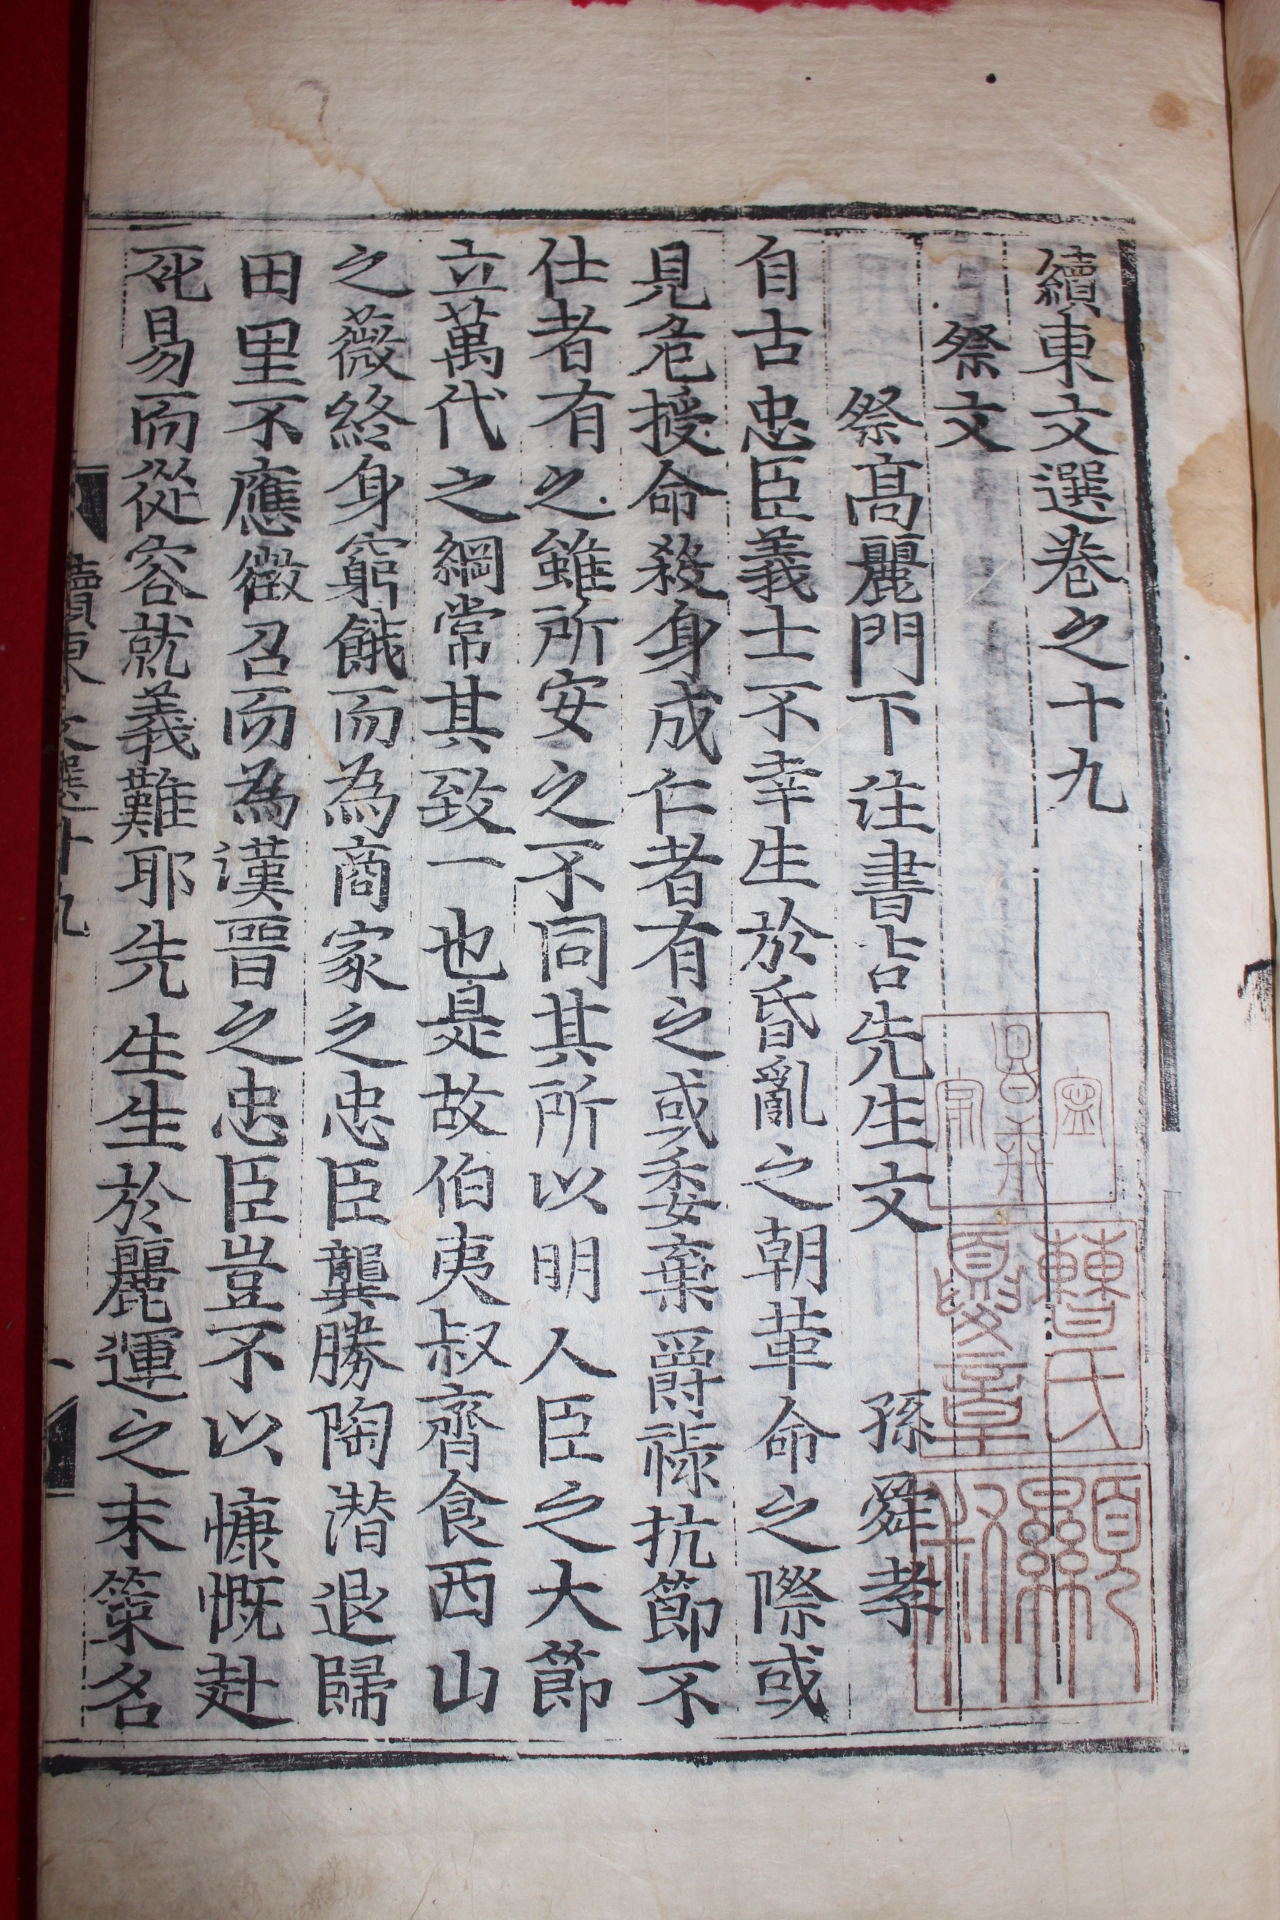 續東文選卷之十九
祭文
祭高麗門下注書吉先生文 孫舜孝
自古忠臣義士不幸生於昏亂之朝革命之際或
見危授命殺身成仁者有之或委棄爵祿抗節不
仕者有之雖所安之不同其所以明人臣之大節
立萬代之綱常其致一也是故伯夷叔齊食西山
之薇終身窮餓而為商家之忠臣龔勝陶潛退歸
田里不應徵召而為漢晉之忠臣豈不以慷慨赴
死易而從容就義難耶先生生於麗運之末策名
續東文選十九
一